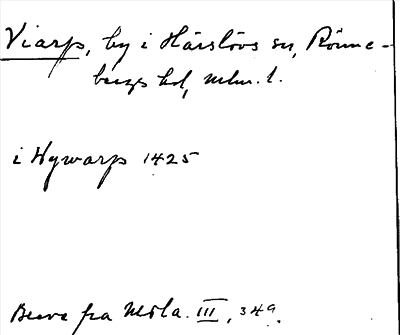 Viarp, by i Härslövs sn, Rönne-
bergs hd, Mlm. l.
i Hywarp 1425
Breve fra Msla. III, 349.